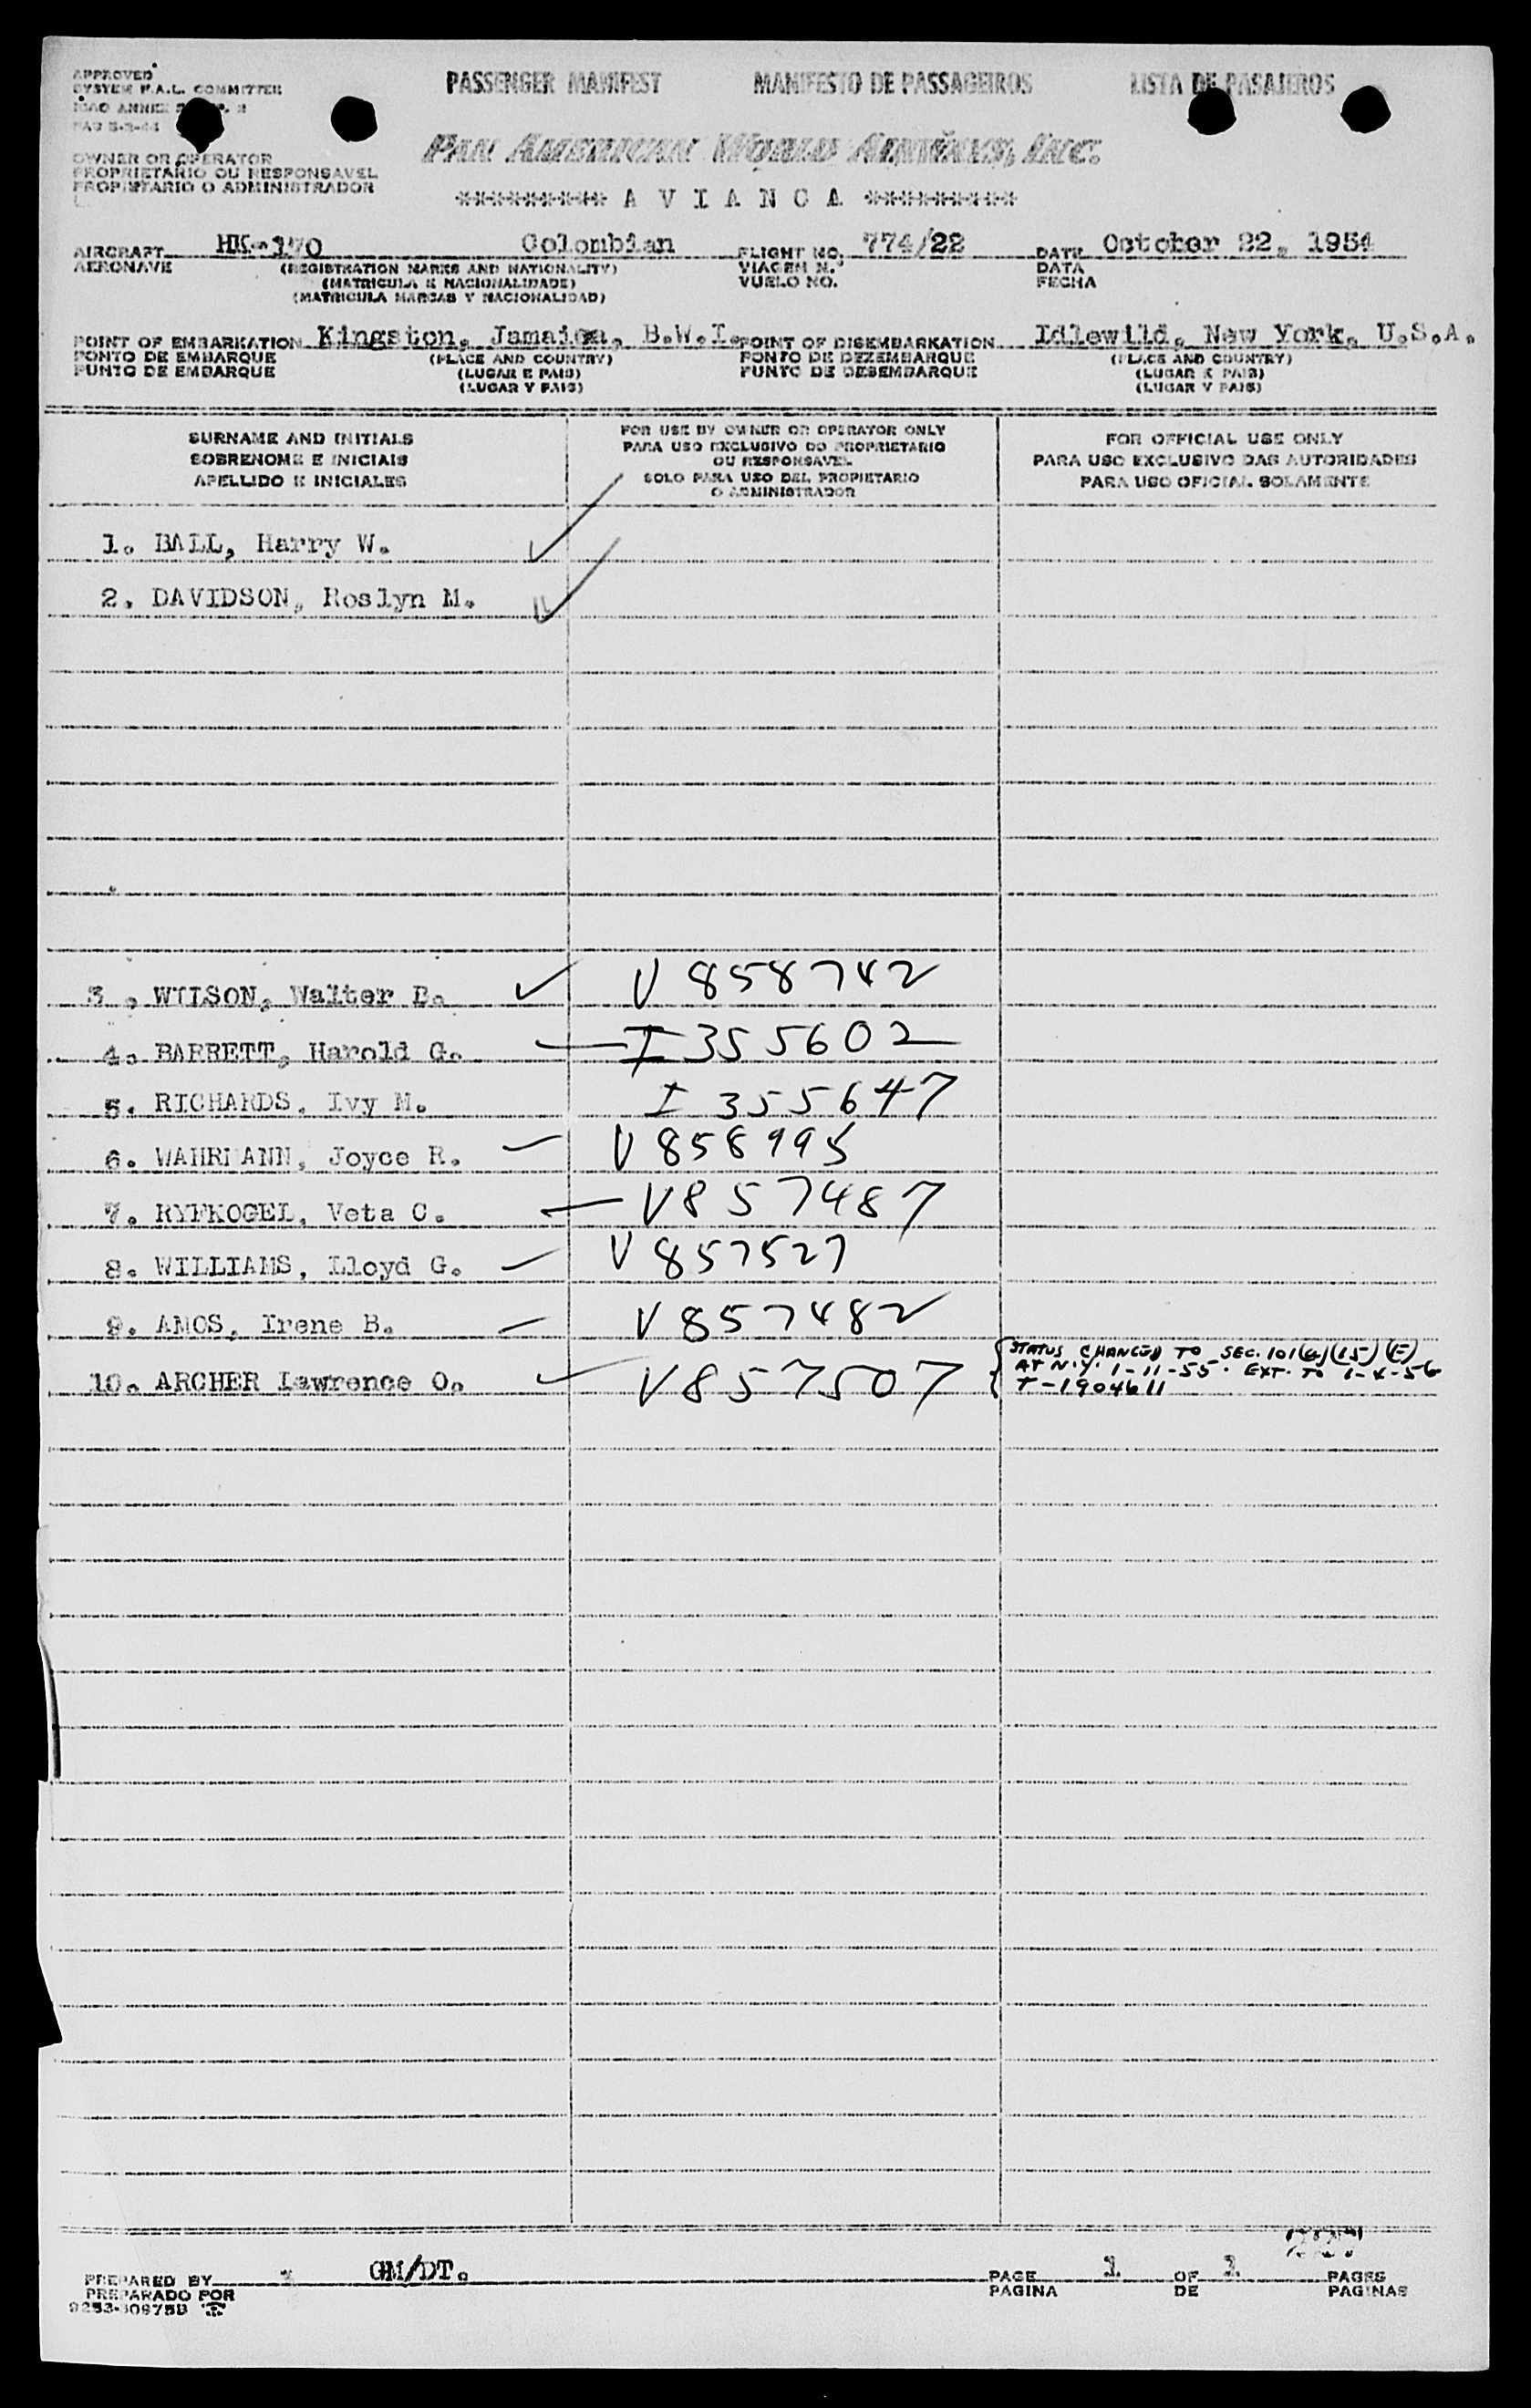 APPROVED
SYSTEM F.A.L. COMMITTEE
ICAO ANNEX
PAG 5-2-44
PASSENGER MANIFEST MANIFESTO DE PASSAGEIROS LISTA DE PASAJEROS
PAN AMERICAN WORLD AIRWAYS, INC.
OWNER OR OPERATOR
PROPRIETARIO OU RESPONSAVEL
PROPIETARIO O ADMINISTRADOR
********* A V I A N C A *********
AIRCRAFT HK-170 Colombian FLIGHT NO. 774/22 DATE October 22, 1954
AERONAVE (REGISTRATION MARKS AND NATIONALITY) VIAGEM N.º DATA
(MATRICULA E NACIONALIDADE) VUELO NO. FECHA
(MATRICULA MARCAS Y NACIONALIDAD)
POINT OF EMBARKATION Kingston, Jamaica, B.W.I. POINT OF DISEMBARKATION Idlewild, New York, U.S.A.
PONTO DE EMBARQUE (PLACE AND COUNTRY) PONTO DE DEZEMBARQUE (PLACE AND COUNTRY)
PUNTO DE EMBARQUE (LUGAR E PAIS) PUNTO DE DESEMBARQUE (LUGAR E PAIS)
(LUGAR Y PAIS) (LUGAR Y PAIS)
SURNAME AND INITIALS
SOBRENOME E INICIAIS
APELLIDO E INICIALES
FOR USE BY OWNER OR OPERATOR ONLY
PARA USO EXCLUSIVO DO PROPRIETARIO
OU RESPONSAVEL
SOLO PARA USO DEL PROPIETARIO
O ADMINISTRADOR
FOR OFFICIAL USE ONLY
PARA USO EXCLUSIVO DAS AUTORIDADES
PARA USO OFICIAL SOLAMENTE
1. BALL, Harry W.
2. DAVIDSON, Roslyn M.
3. WILSON, Walter B. V 858742
4. BARRETT, Harold G. I 355602
5. RICHARDS, Ivy M. I 355647
6. WAHRMANN, Joyce R. V 858995
7. RYFKOGEL, Veta C. V857487
8. WILLIAMS, Lloyd G. V 857527
9. AMOS, Irene B. V 857482
10. ARCHER Lawrence O. V857507
STATUS CHANGED TO SEC. 101(a)(15)(E)
AT N.Y. 1-11-55. EXT. TO 1-4-56
T-1904611
PREPARED BY GM/DT. PAGE 1 OF 1 PAGES
PREPARADO POR PAGINA DE PAGINAS